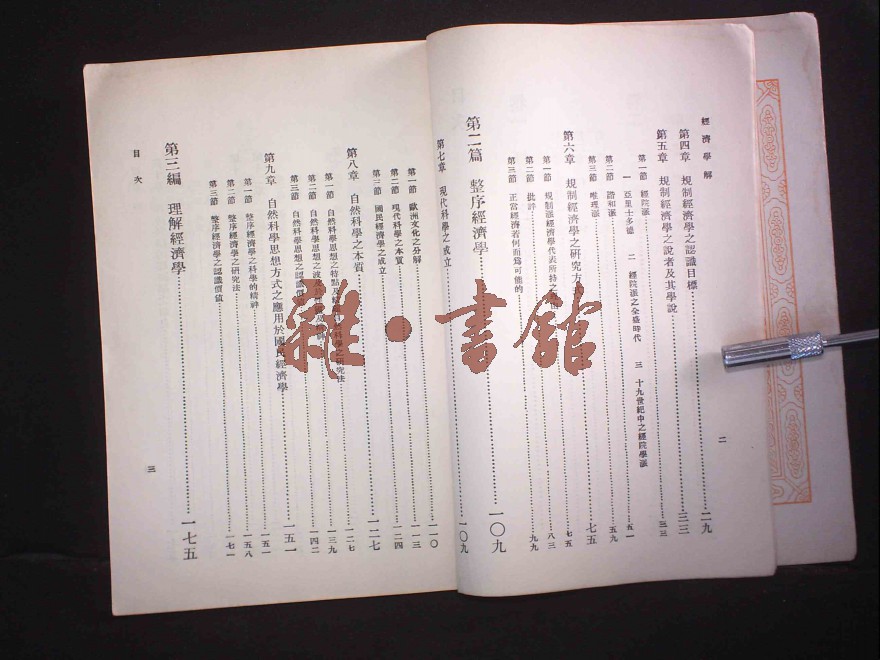 經濟學解
第四章 規制經濟學之認識目標 二九
第五章 規制經濟學之說者及其學說 三三
第一節 經院派 三三
一 亞里士多德 二 經院派之全盛時代 三 十九世紀中之經院學派 五一
第二節 諧和派 五九
第三節 唯理派 七五
第六章 規制經濟學之研究方 七五
第一節 規制派經濟學代表所持之 八三
第二節 批評 九九
第三節 正常經濟若何而爲可能的
二
第二篇 整序經濟學 一〇九
第七章 現代科學之成立 一〇九
第一節 歐洲文化之分解 一一〇
第二節 現代科學之本質 一一三
第三節 國民經濟學之成立 一二四
第八章 自然科學之本質 一二七
第一節 自然科學思想之特點及 自然科學之研究法 一二七
第二節 自然科學思想之 一三九
第三節 自然科學思想之認識價值 一四二
第九章 自然科學思想方式之應用於國民經濟學 一五一
第一節 整序經濟學之科學的精神 一五一
第二節 整序經濟學之研究法 一五八
第三節 整序經濟學之認識價值 一七一
第三編 理解經濟學 一七五
目次
三
雜·書館